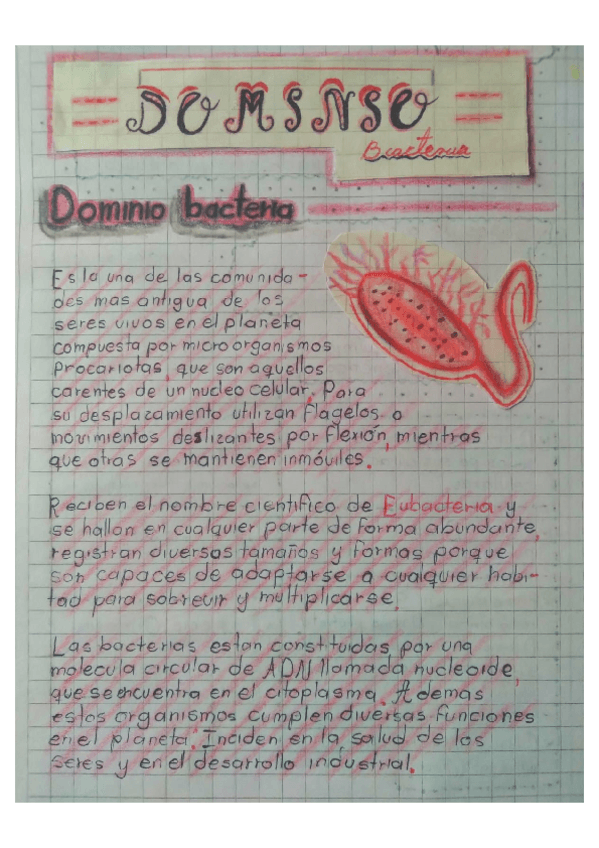 DOMINIO
Bacteria
Dominio bacteria
Es la una de las comunida-
des mas antigua de los
seres vivos en el planeta
compuesta por microorganismos
Procariotas, que son aquellos
carentes de un nucleo celular. Para
su desplazamiento utilizan flagelos o
movimientos deslizantes por flexión, mientras
que otras se mantienen inmóviles.
Reciben el nombre cientifico de Eubacteria y
se hallan en cualquier parte de forma abundante,
registran diversos tamaños y formas porque
son capaces de adaptarse a cualquier habi-
tad para sobrevir y multiplicarse.
Las bacterias estan constituidas por una
molecula circular de ADN llamada nucleoide,
que se encuentra en el citoplasma. Ademas
estos organismos cumplen diversas funciones
en el planeta. Inciden en la salud de los
seres y en el desarrollo industrial.